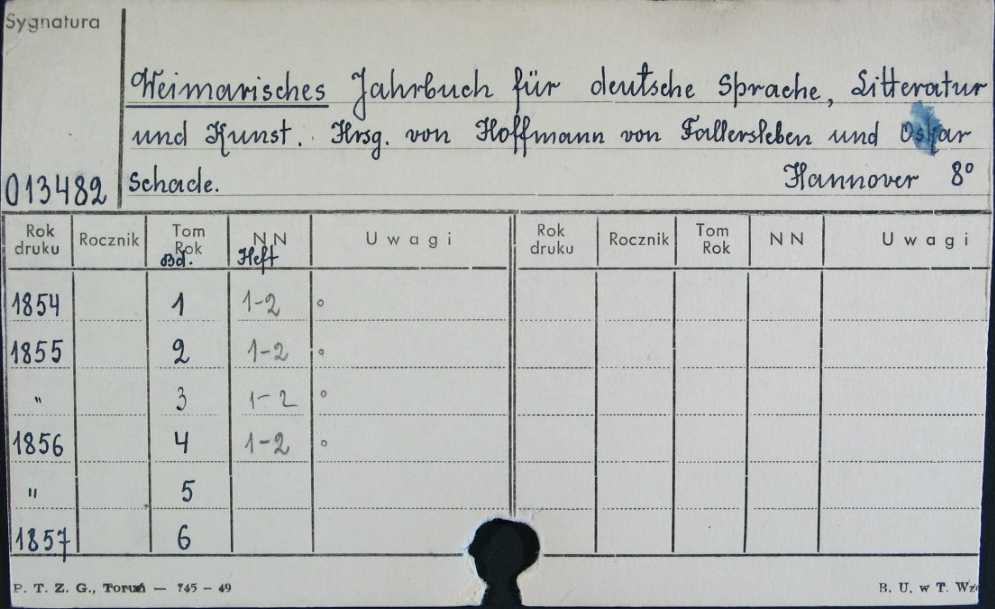 Sygnatura
Weimarisches Jahrbuch für deutsche Sprache, Litteratur
und Kunst. Hrsg. von Hoffmann von Fallersleben und Oskar
013482 Schade. Hannover 8°
Rok druku Rocznik Tom Rok Bd. NN Heft Uwagi Rok druku Rocznik Tom Rok NN Uwagi
1854 1 1-2 °
1855 2 1-2 °
" 3 1-2 °
1856 4 1-2 °
" 5
1857 6
P. T. Z. G., Toruń — 745 – 49 B. U. w T. Wz